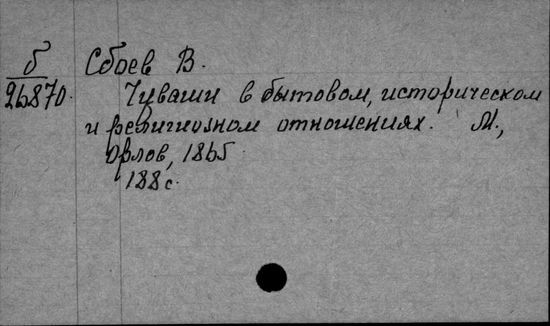 б
26870.
Сбоев В.
Чуваши в бытовом, историческом
и религиозном отношениях. М.,
Орлов, 1865.
188 с.